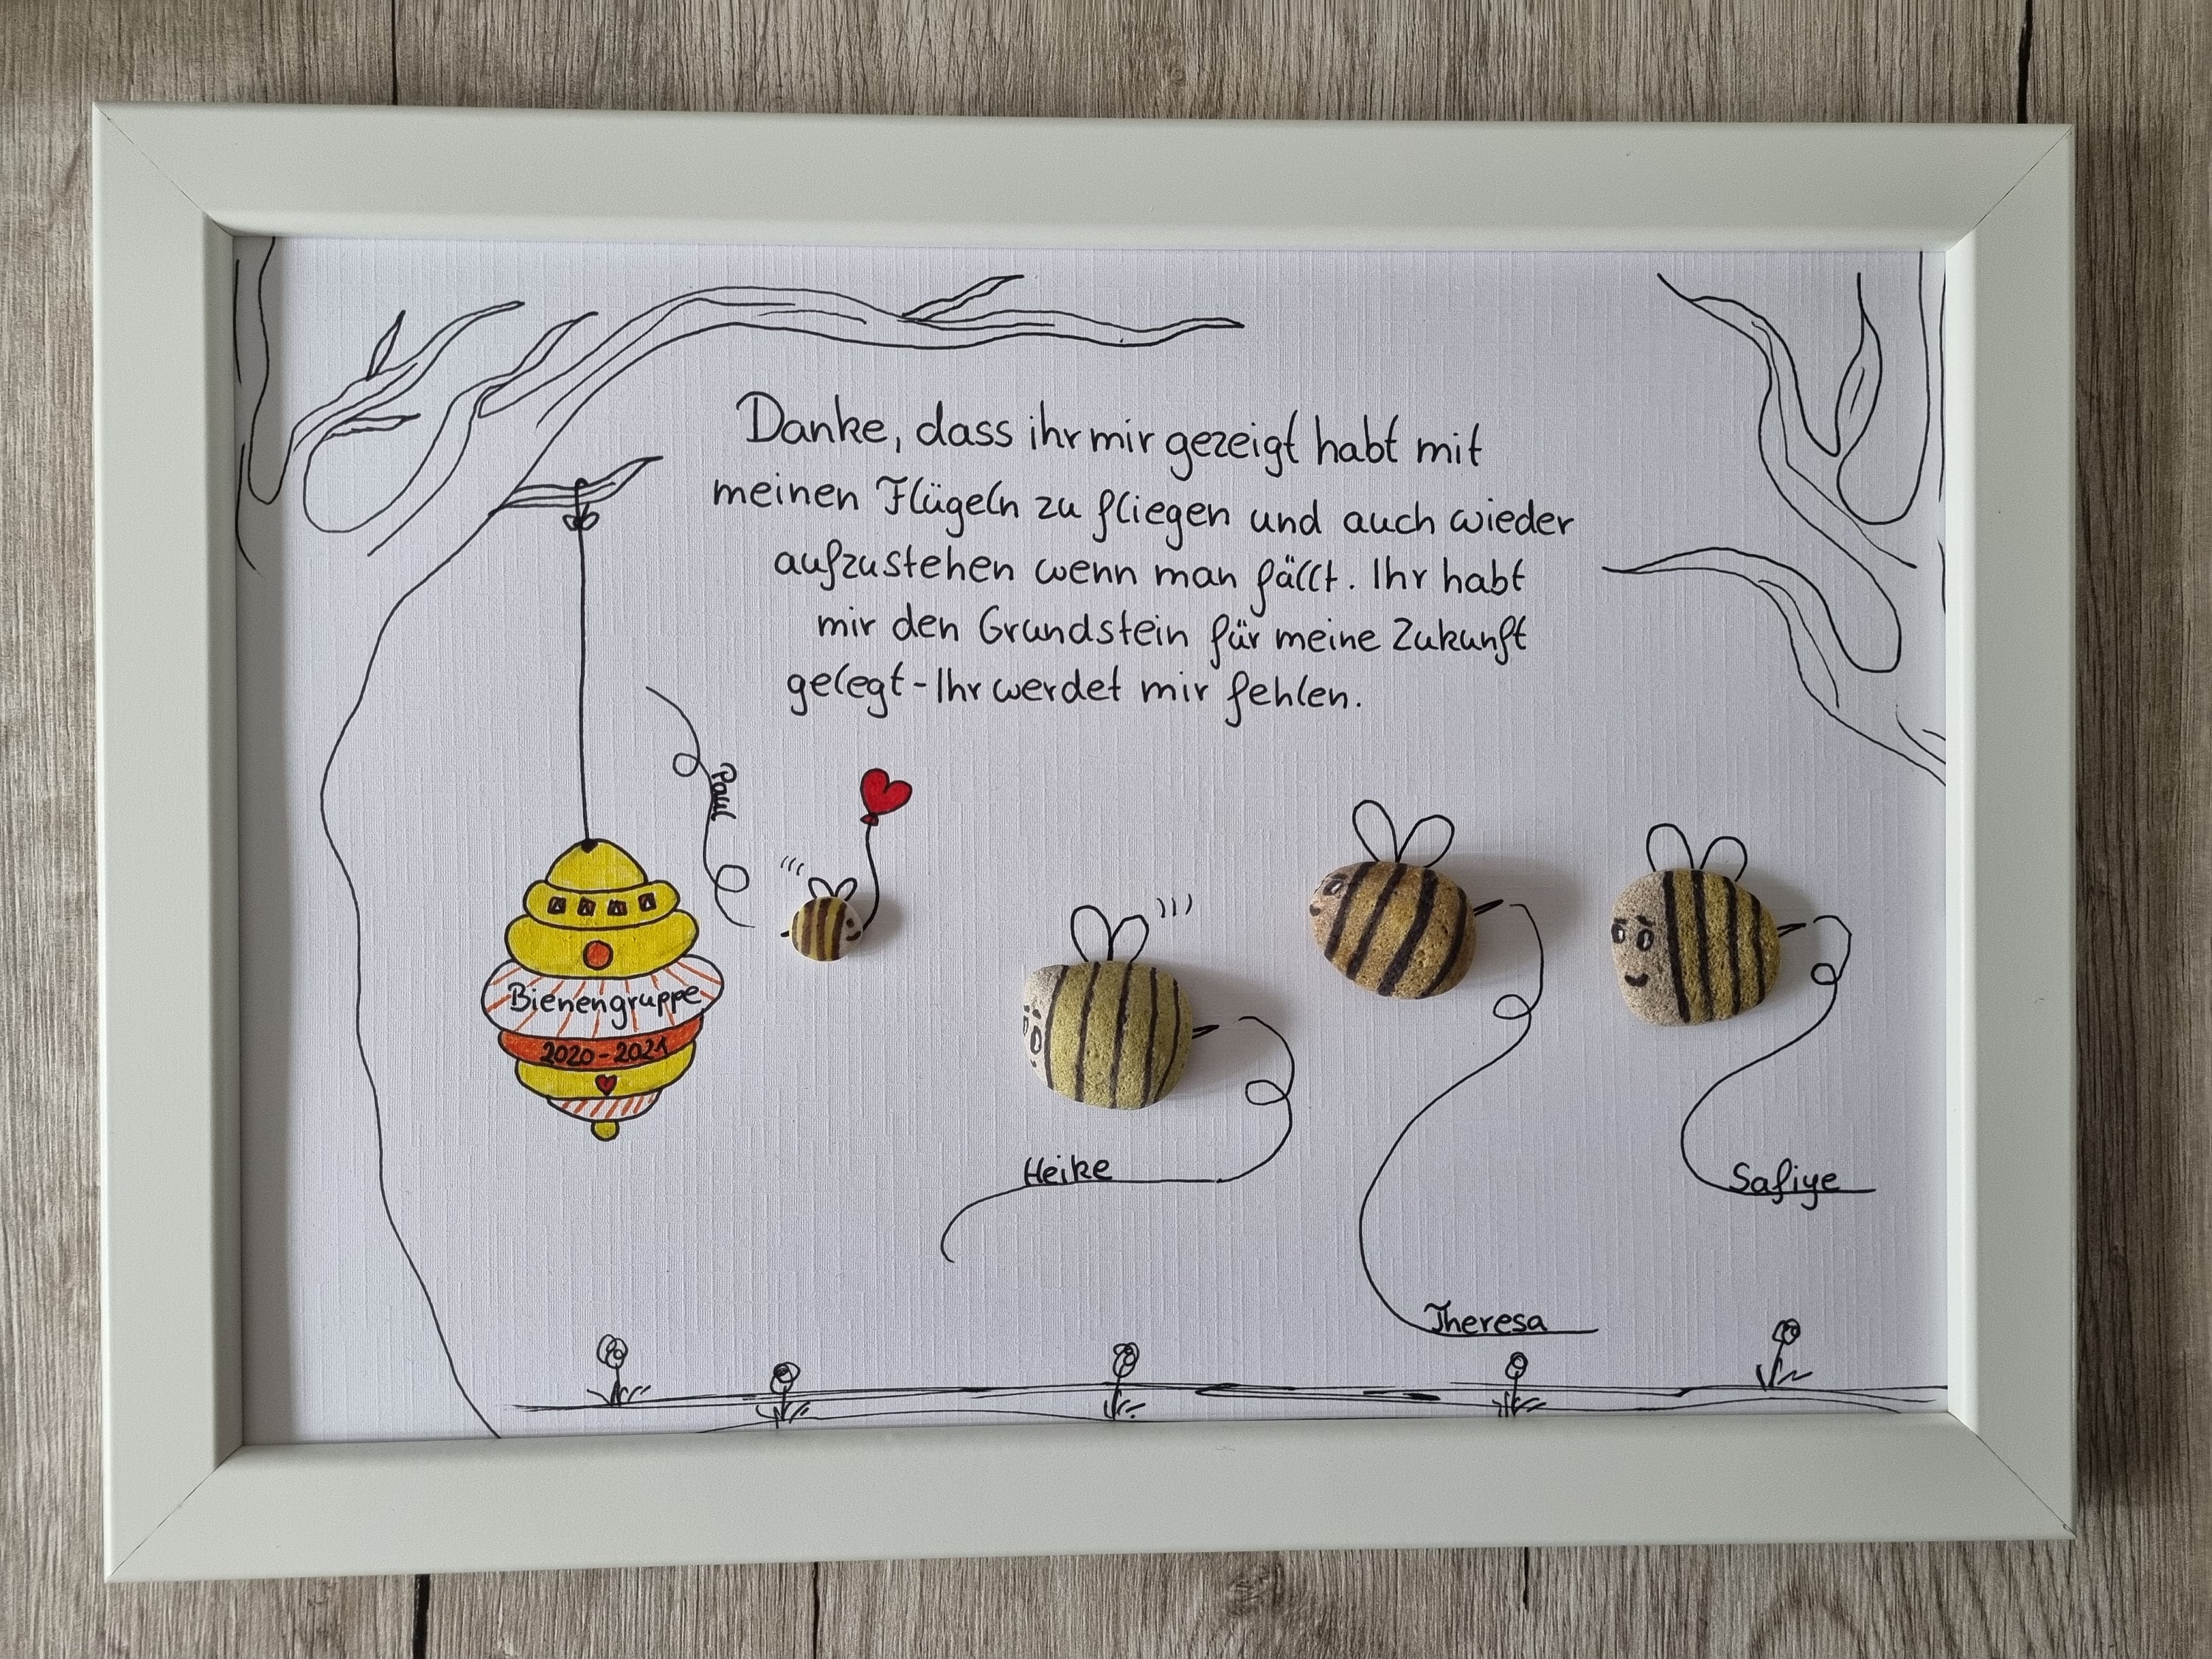 Danke, dass ihr mir gezeigt habt mit
meinen Flügeln zu fliegen und auch wieder
aufzustehen wenn man fällt. Ihr habt
mir den Grundstein für meine Zukunft
gelegt - Ihr werdet mir fehlen.
Paul
Bienengruppe
2020-2021
Heike
Theresa
Safiye